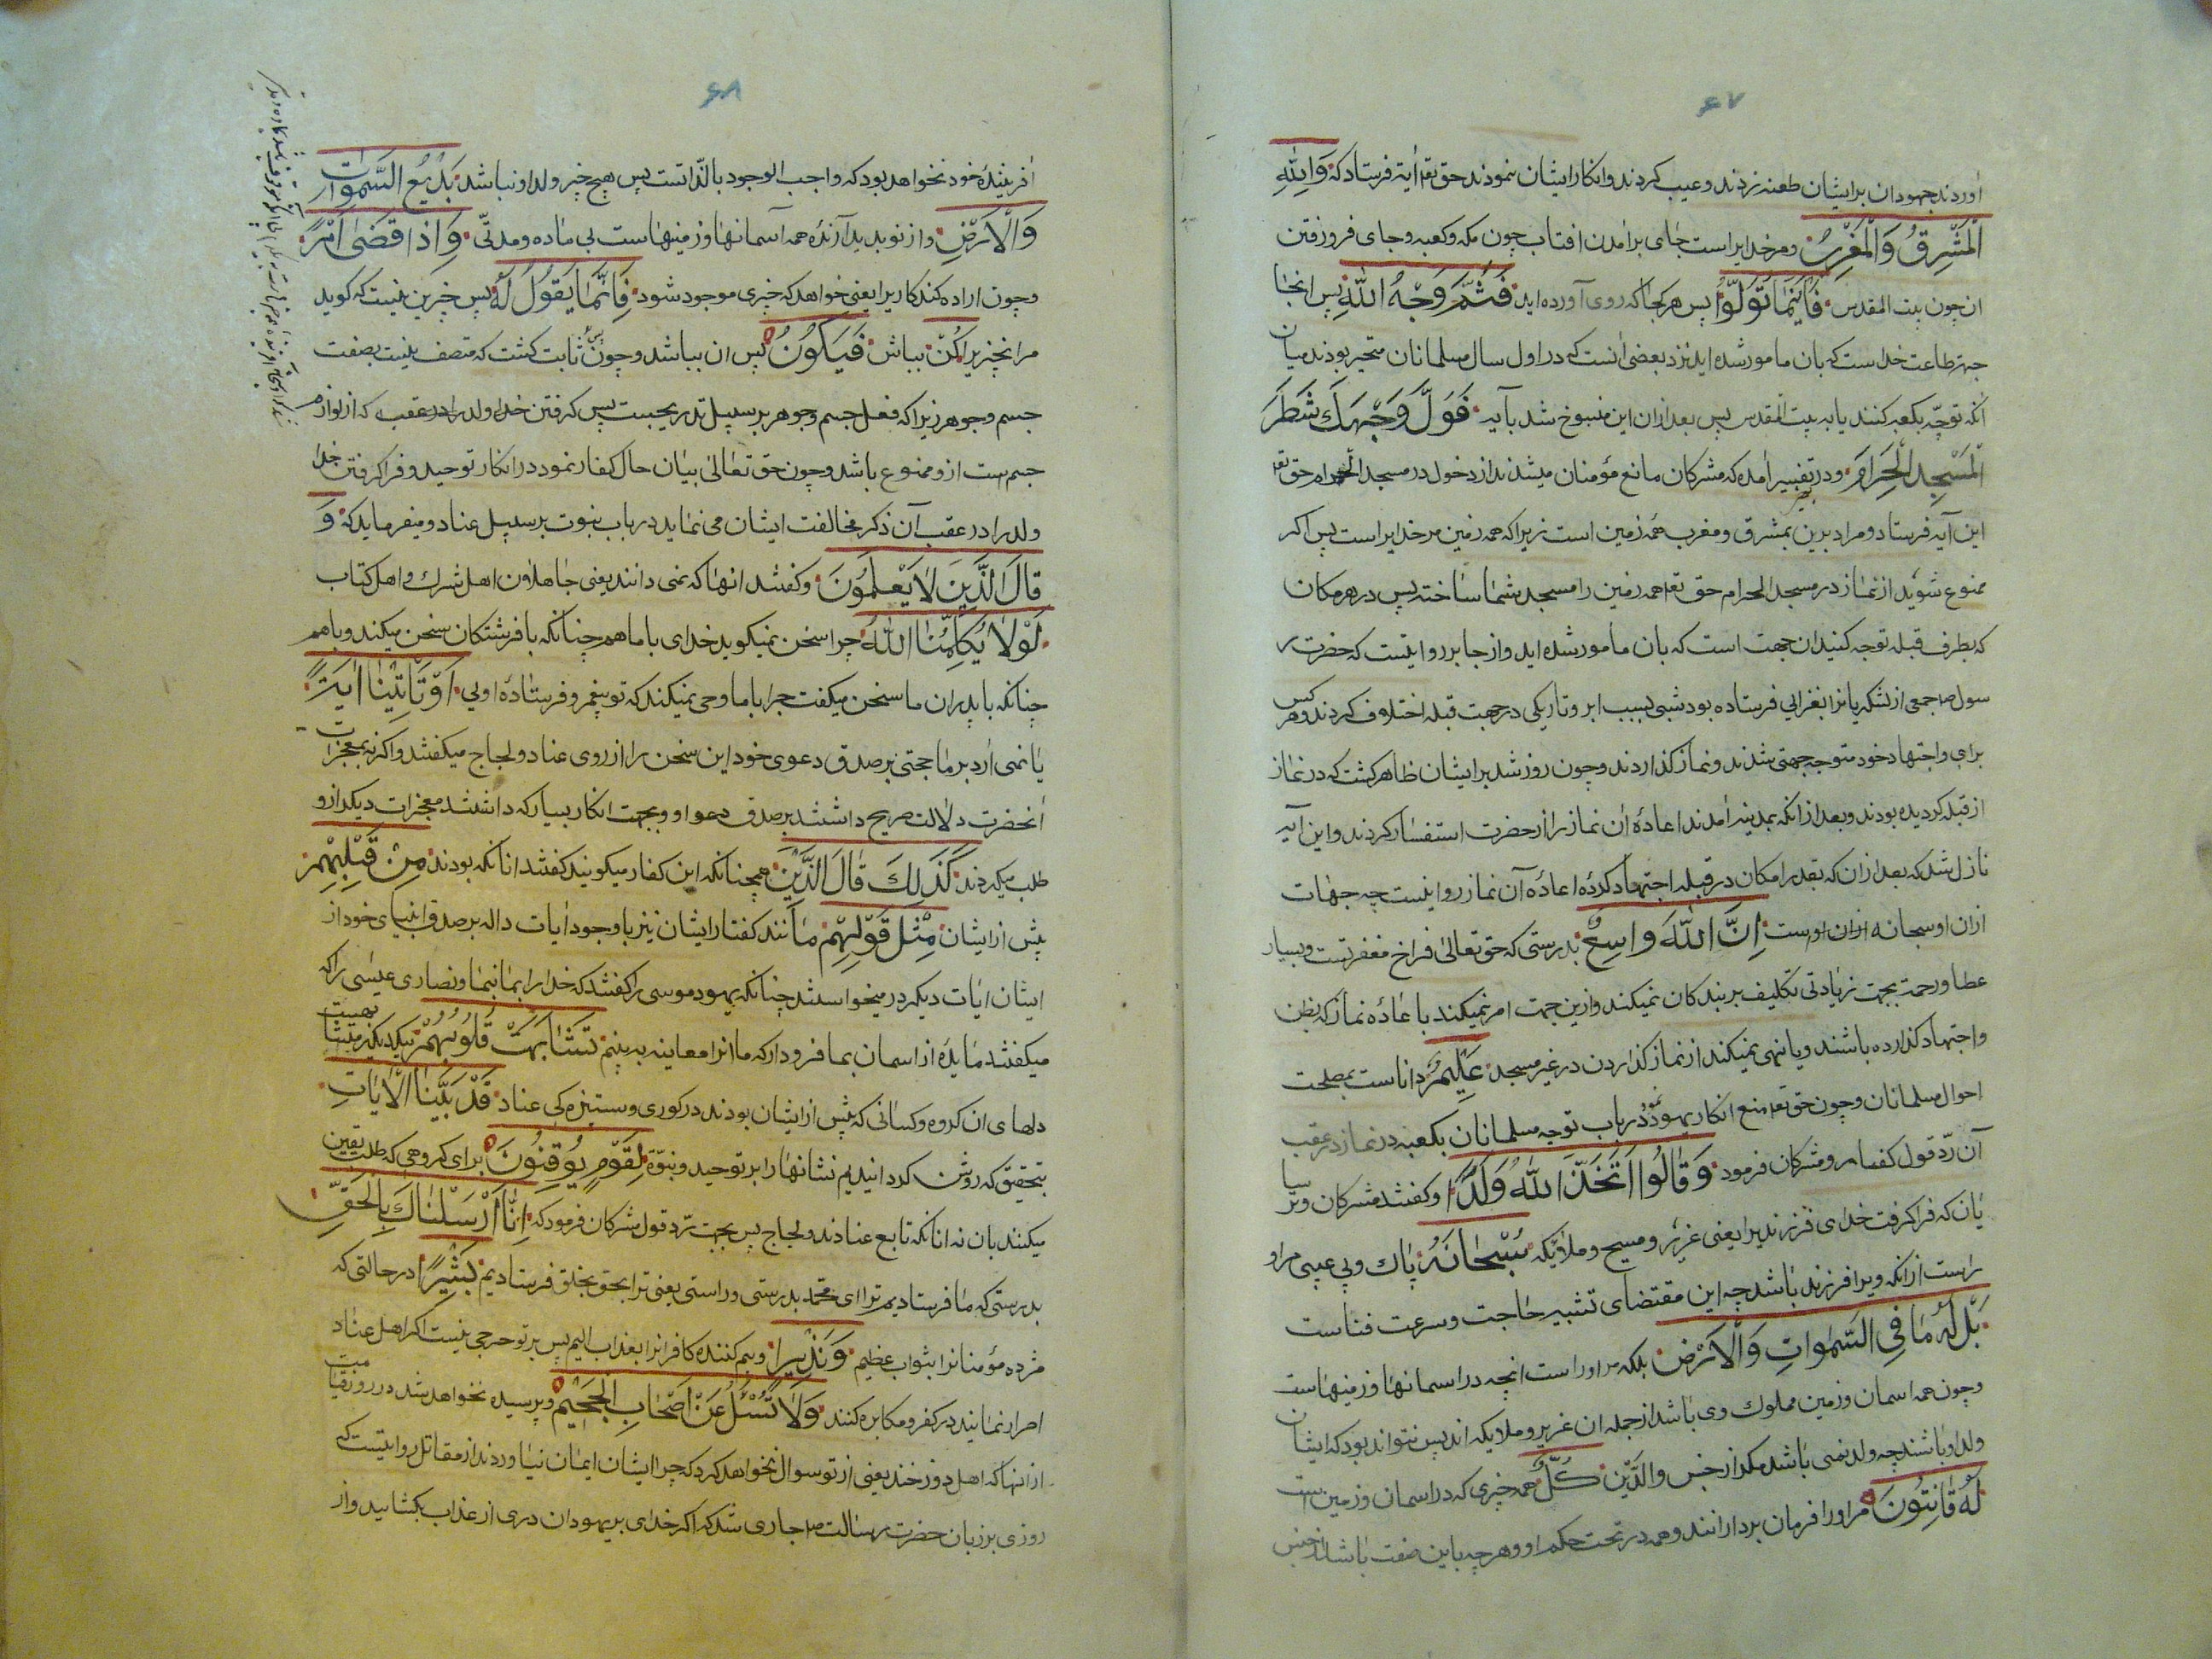 ۶۷
اوردند جهودان برایشان طعنه زدند و عیب کردند و انکار ایشان نمودند حق تعا ایه فرستاد که وَلِلّٰهِ
الْمَشْرِقُ وَالْمَغْرِبُ ومر خدایراست جای برامدن افتاب چون مکه و کعبه و جای فرو رفتن
ان چون بیت المقدس فَاَیْنَمَا تُوَلُّوا پس هر کجا که روی آورده اید فَثَمَّ وَجْهُ اللّٰهِ پس انجا
جهة طاعت خداست که بان مامور شده اید نزد بعضی انست که در اول سال مسلمانان متحیر بودند میان
انکه توجّه بکعبه کنند یا به بیت المقدس پس بعد ازان این منسوخ شد بآیه فَوَلِّ وَجْهَكَ شَطْرَ
الْمَسْجِدِ الْحَرَامِ ودر تفسیر امده که مشرکان مانع مؤمنان میشدند از دخول در مسجد الحرام حق تعا
این آیه فرستاد و مراد بدین بمشرق و مغرب همهٔ زمین است زیرا که همه زمین مر خدایراست پس اکر
ممنوع شوید از نماز در مسجد الحرام حق تعا همه زمین را مسجد شما ساخته پس در هر مکان
که بطرف قبله توجه کنید ان جهت است که بان مامور شده اید و از جابر روایتست که حضرت ر
سول ص جمعی از لشکریانرا بغزایی فرستاده بود شبی بسبب ابر و تاریکی در جهت قبله اختلاف کردند و هر کس
برای و اجتهاد خود متوجه جهتی شدند و نماز کذاردند و چون روز شد برایشان ظاهر کشت که در نماز
از قبله کردیده بودند و بعد از انکه بمدینه امدند اعادهٔ ان نماز را از حضرت استفسار کردند و این آیه
نازل شد که بعد ازان که بقدر امکان در قبله اجتهاد کرده اعادهٔ آن نماز روا نیست چه جهات
ازان او سبحانه ازان اوست اِنَّ اللّٰهَ وَاسِعٌ بدرستی که حق تعالی فراخ مغفرتست و بسیار
عطا و رحمة بجهت زیادتی تکلیف بر بندکان نمیکند و ازین جهت امر نمیکند با عادهٔ نماز که بظن
و اجتهاد کذارده باشند و یا نهی نمیکند از نماز کذاردن در غیر مسجد عَلِیمٌ دانا ست بمصلحت
احوال مسلمانان و چون حق تعا منع انکار یهود نمود در باب توجه مسلمانان بکعبه در نماز در عقب
آن ردّ قول کفار و مشرکان فرمود وَقَالُوا اتَّخَذَ اللّٰهُ وَلَدًا و کفتند مشرکان و ترسا
یان که فرا کرفت خدای فرزندیرا یعنی عزیر و مسیح و ملایکه سُبْحَانَهُ پاك و بی عیبی مر او
راست از انکه ویرا فرزند باشد چه این مقتضای تشبیه حاجت و سرعت فناست
بَلْ لَهُ مَا فِی السَّمٰوَاتِ وَالْاَرْضِ بلکه مر اوراست انچه در اسمانها و زمینهاست
و چون همه اسمان و زمین مملوك وی باشد از جمله ان عزیر و ملایکه اند پس نتواند بود که ایشان
ولد او باشند چه ولد نمی باشد مکر از جنس والدین كُلٌّ همه چیزی که در اسمان و زمین است
لَهُ قَانِتُونَ مر اورا فرمان بردارانند و همه در تحت حکم او و هر چه باین صفت باشد از جنس
۶۸
افرینندهٔ خود نخواهد بود که واجب الوجود بالذّاتست پس هیچ چیز ولد او نباشد بَدِیعُ السَّمٰوَاتِ
وَالْاَرْضِ و از نو پدید آرندهٔ همه آسمانها و زمینهاست بی ماده و مدتی وَاِذَا قَضٰی اَمْرًا
و چون اراده کند کاریرا یعنی خواهد که چیزی موجود شود فَاِنَّمَا یَقُولُ لَهُ پس جز این نیست که کوید
مر انچیزیرا كُنْ بباش فَیَكُونُ پس ان بباشد و چون ثابت کشت که متصف نیست بصفت
جسم و جوهر زیرا که فعل جسم و جوهر بر سبیل تدریجست پس کرفتن خدا ولد را در عقب که از لوازم
جسم است ازو ممنوع باشد و چون حق تعالی بیان حال کفار نمود در انکار توحید و فرا کرفتن خدا
ولد را در عقب آن ذکر مخالفت ایشان می نماید در باب نبوت بر سبیل عناد و میفرماید که وَ
قَالَ الَّذِینَ لَا یَعْلَمُونَ و کفتند انها که نمی دانند یعنی جاهلون اهل شرك و اهل کتاب
لَوْلَا یُكَلِّمُنَا اللّٰهُ چرا سخن نمیکوید خدای با ما هم چنانکه با فرشتکان سخن میکند و با هم
چنانکه با پدران ما سخن میکفت چرا با ما وحی نمیکند که تو پیغمبر و فرستادهٔ اویی اَوْ تَأْتِینَا اٰیَةٌ
یا نمی ارد بر ما حجتی بر صدق دعوی خود این سخن را از روی عناد و لجاج میکفتند و اکر نه بمعجزات
انحضرت دلالت صریح داشتند بر صدق دعوا او و بجهت انکار بسیار که داشتند معجزات دیکر ازو
طلب میکردند كَذٰلِكَ قَالَ الَّذِینَ همچنانکه این کفار میکویند کفتند انانکه بودند مِنْ قَبْلِهِمْ
پیش از ایشان مِثْلَ قَوْلِهِمْ مانند کفتار ایشان نیز با وجود ایات داله بر صدق انبیای خود از
ایشان ایات دیکر در میخواستند چنانکه یهود موسی را کفتند که خدا را بما بنما و نصاری عیسی را که
میکفتند مایده از اسمان بما فرود ار که ما انرا معاینه به بینیم تَشَابَهَتْ قُلُوبُهُمْ بیکدیکر میشا بهست
دلهای ان کروه و کسانی که پیش از ایشان بودند در کوری و ستیزه کی عناد قَدْ بَیَّنَّا الْاٰیَاتِ
بتحقیق که روشن کردانیدیم نشانها را بر توحید و نبوّة لِقَوْمٍ یُوقِنُونَ برای کروهی که طلب یقین
میکنند بان نه انانکه تابع عنادند و لجاج پس بجهت ردّ قول مشرکان فرمود که اِنَّا اَرْسَلْنَاكَ بِالْحَقِّ
بدرستی که ما فرستادیم ترا ای محمد بدرستی و راستی یعنی ترا بحق بخلق فرستادیم بَشِیرًا در حالتی که
مژده مؤمنانرا بثواب عظیم وَنَذِیرًا و بیم کننده کافرانرا بعذاب الیم پس بر تو حرجی نیست اکر اهل عناد
اصرار نمایند در کفر و مکابره کنند وَلَا تُسْئَلُ عَنْ اَصْحَابِ الْجَحِیمِ و پرسیده نخواهد شد در روز قیامت
از انها که اهل دوزخند یعنی از تو سوال نخواهد کرد که چرا ایشان ایمان نیاوردند از مقاتل روایتست که
روزی بر زبان حضرت رسالت ص جاری شد که اکر خدای بر یهودان دری از عذاب بکشاید و از